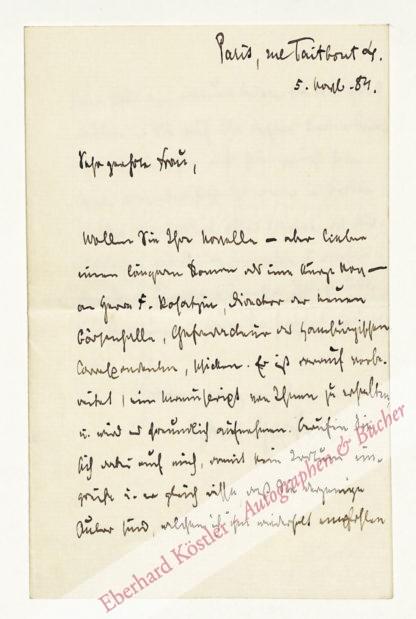 Paris, rue Taitbout
5. Novb. -84.
Sehr geehrte Frau,
Wollen Sie Ihre Novelle – aber lieber
einen längeren Roman als eine kurze Nov –
an Herrn F. Rosatzin, Director der neuen
Börsenhalle, Chefredacteur des Hamburgischen
Correspondenten, schicken. Er ist darauf vorbe-
reitet, ein Manuscript von Ihnen zu erhalten
u. wird es freundlich aufnehmen. Berufen Sie
sich dabei auf mich, damit kein Irrthum
u. er gleich wisse daß Sie derjenige
Autor sind, welchen ich ihm wiederholt empfohlen
Eberhard Köstler Autographen & Bücher